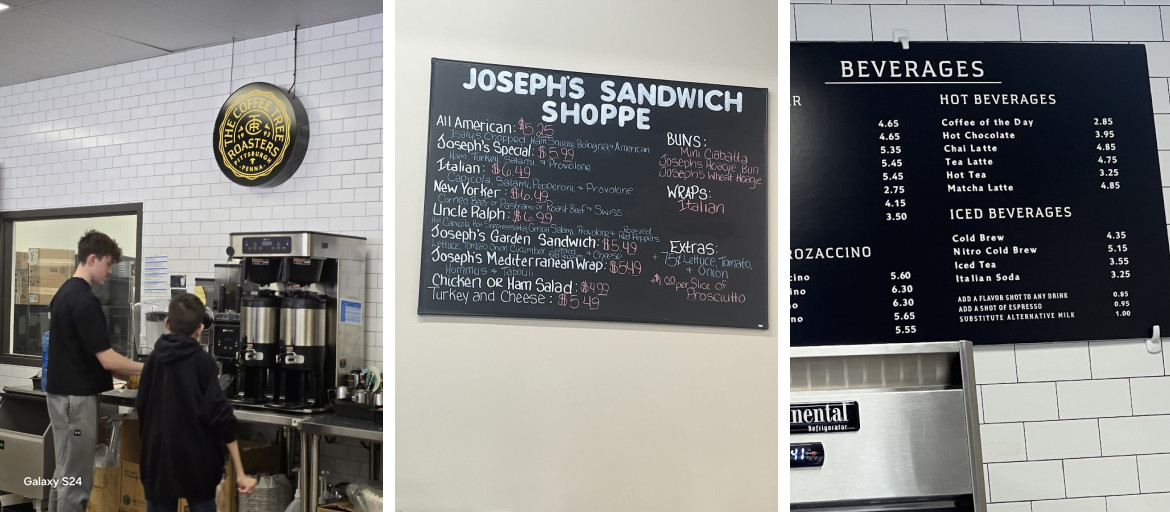 THE COFFEE TREE
ROASTERS
PITTSBURGH
PENNA.
Galaxy S24
JOSEPH'S SANDWICH
SHOPPE
All American: $5.25
Isaly's Chopped Ham, Square Bologna + American
Joseph's Special: $5.99
Ham, Turkey, Salami, + Provolone
Italian: $6.49
Capicola, Salami, Pepperoni, + Provolone
New Yorker: $6.49
Corned Beef or Pastrami or Roast Beef + Swiss
Uncle Ralph: $6.99
Provolone + Roasted Red Peppers
Joseph's Garden Sandwich: $5.49
Lettuce, Tomato, Onion, Cucumber, + Cheese
Joseph's Mediterranean Wrap: $5.49
Hommus + Tabouli
Chicken or Ham Salad: $4.99
Turkey and Cheese: $5.49
BUNS:
Mini Ciabatta
Josephs Hoagie Bun
Joseph's Wheat Hoagie
WRAPS:
Italian
Extras:
+ 75¢ Lettuce, Tomato,
+ Onion
per Slice of
Prosciutto
BEVERAGES
4.65
4.65
5.35
5.45
5.45
2.75
4.15
3.50
ROZACCINO
cino 5.60
ino 6.30
6.30
no 5.65
5.55
HOT BEVERAGES
Coffee of the Day 2.85
Hot Chocolate 3.95
Chai Latte 4.85
Tea Latte 4.75
Hot Tea 3.25
Matcha Latte 4.85
ICED BEVERAGES
Cold Brew 4.35
Nitro Cold Brew 5.15
Iced Tea 3.55
Italian Soda 3.25
ADD A FLAVOR SHOT TO ANY DRINK 0.85
ADD A SHOT OF ESPRESSO 0.95
SUBSTITUTE ALTERNATIVE MILK 1.00
nental
Refrigerator